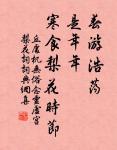 春游浩荡
是年年
寒食梨花时节
丘处机无俗念灵虚宫
梨花词词典网喜